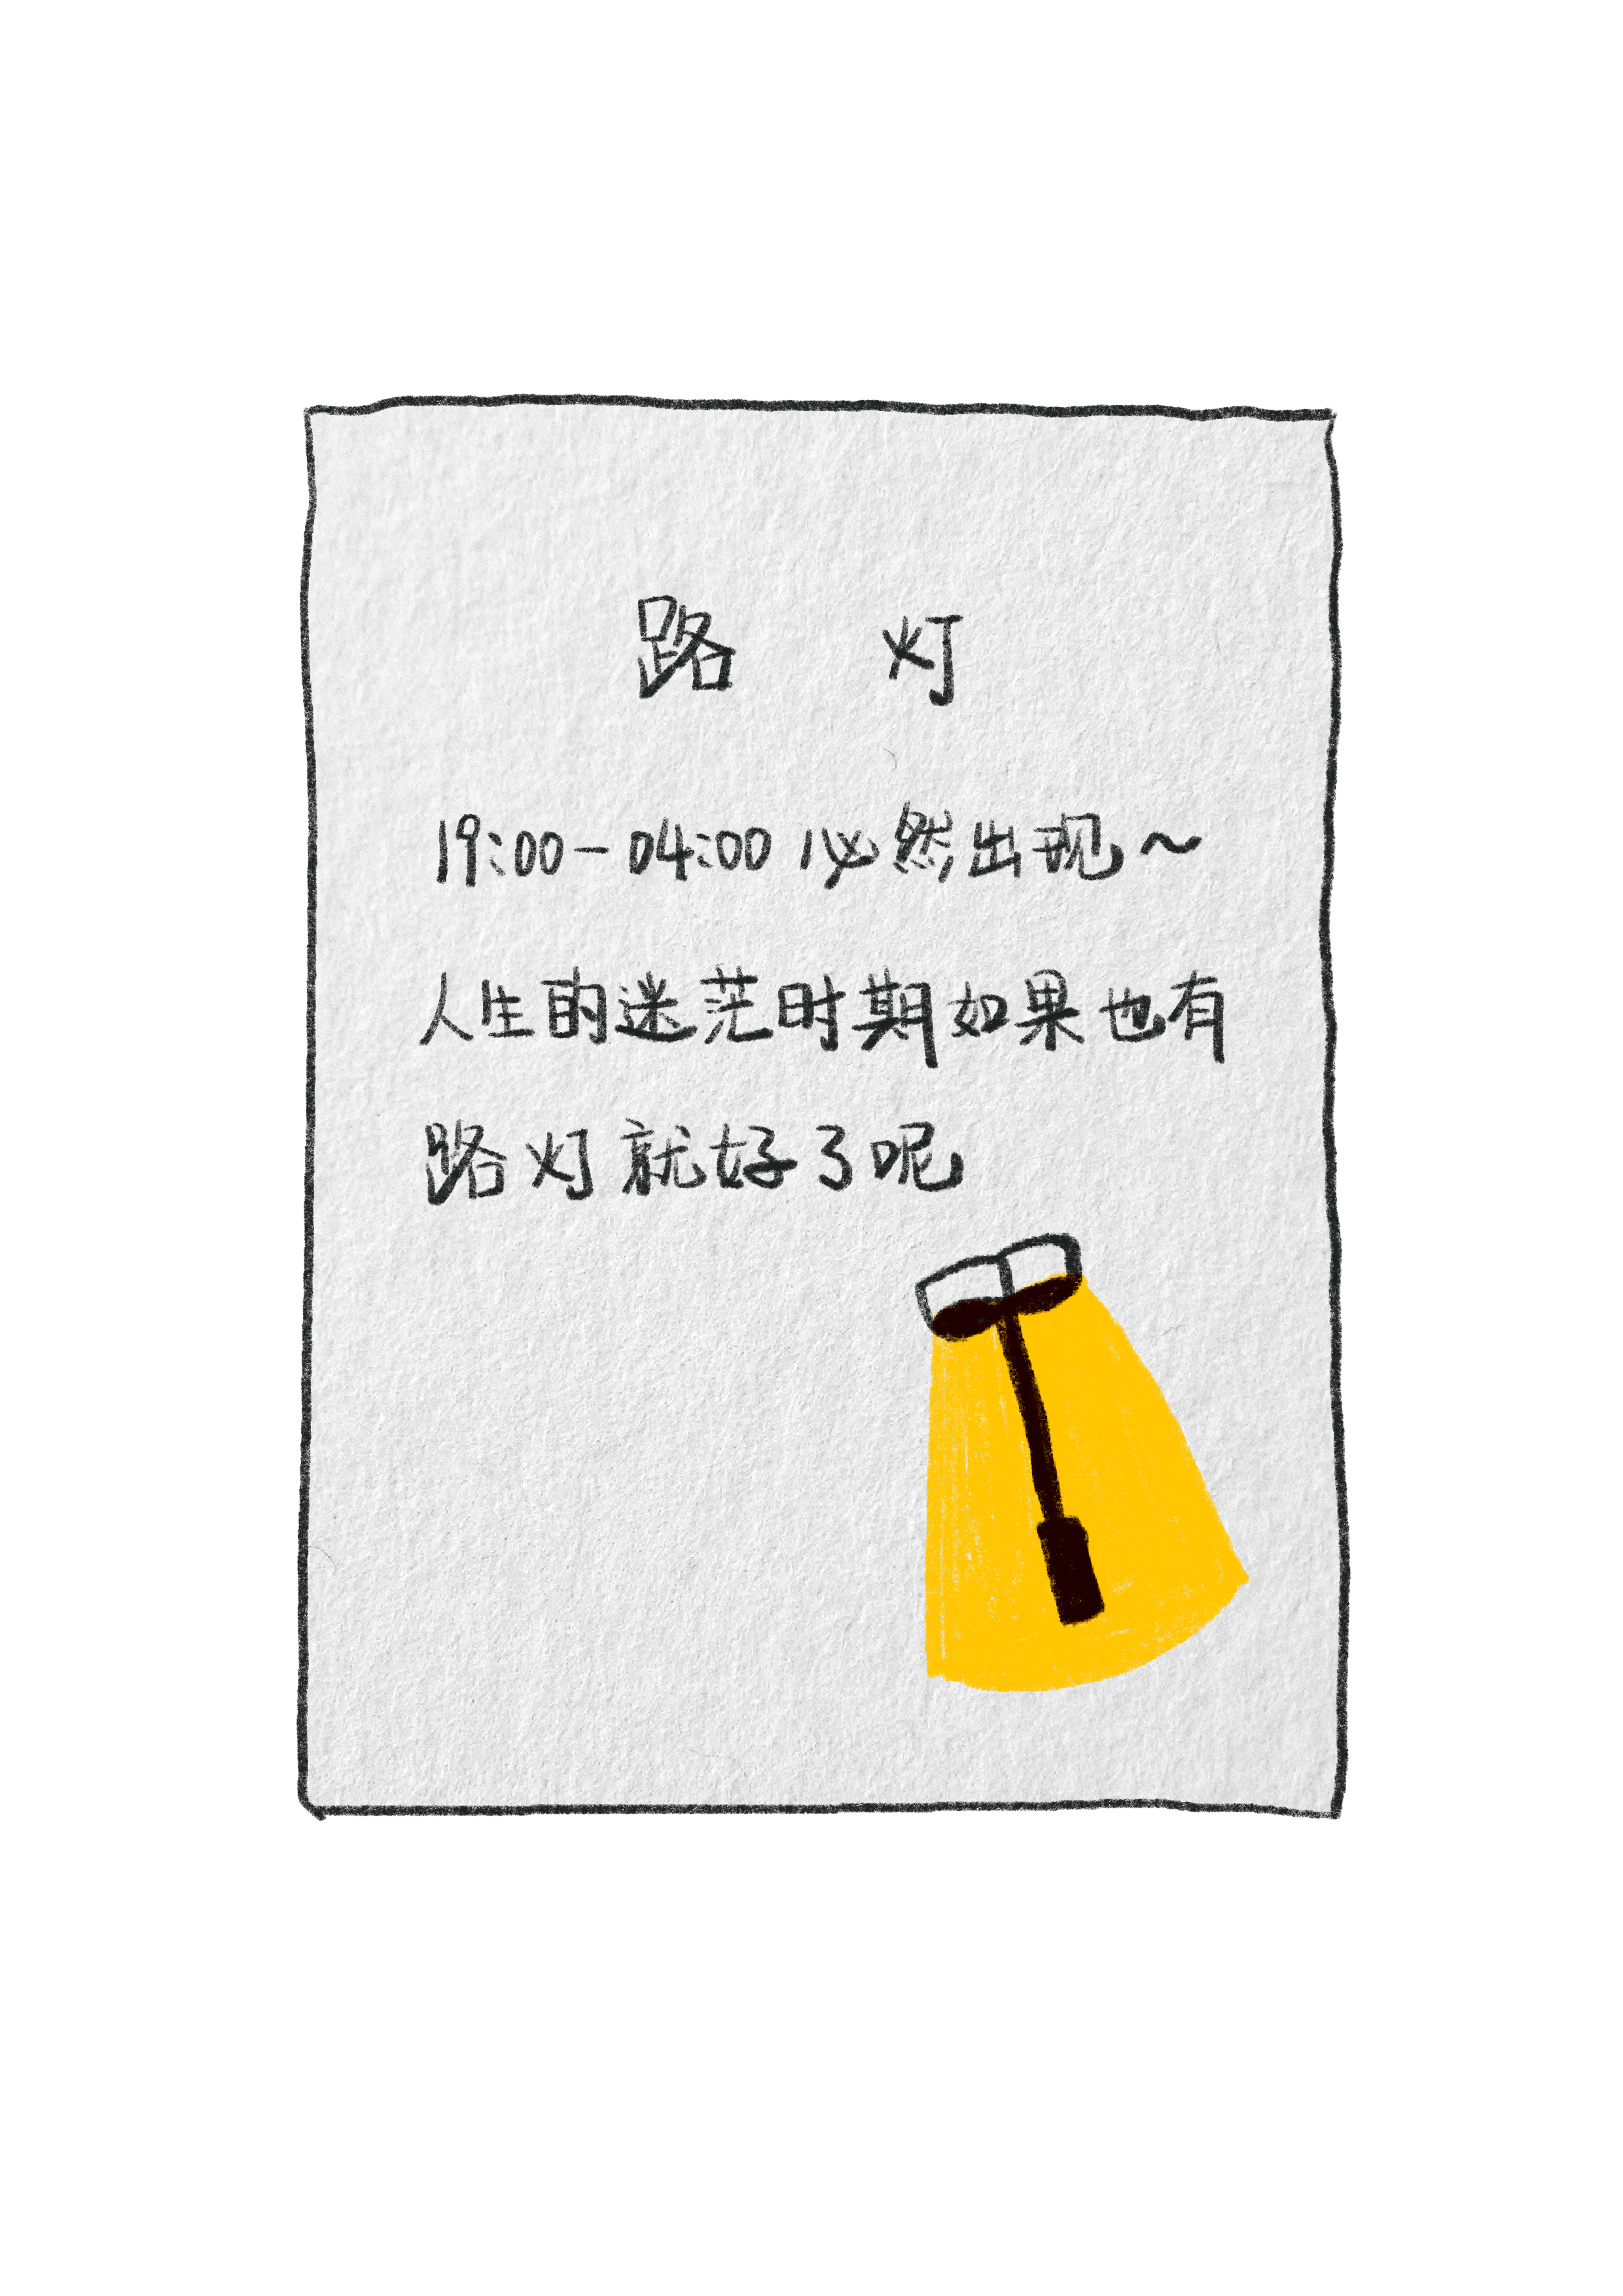 路 灯
19:00-04:00 必然出现~
人生的迷茫时期如果也有
路灯就好了呢